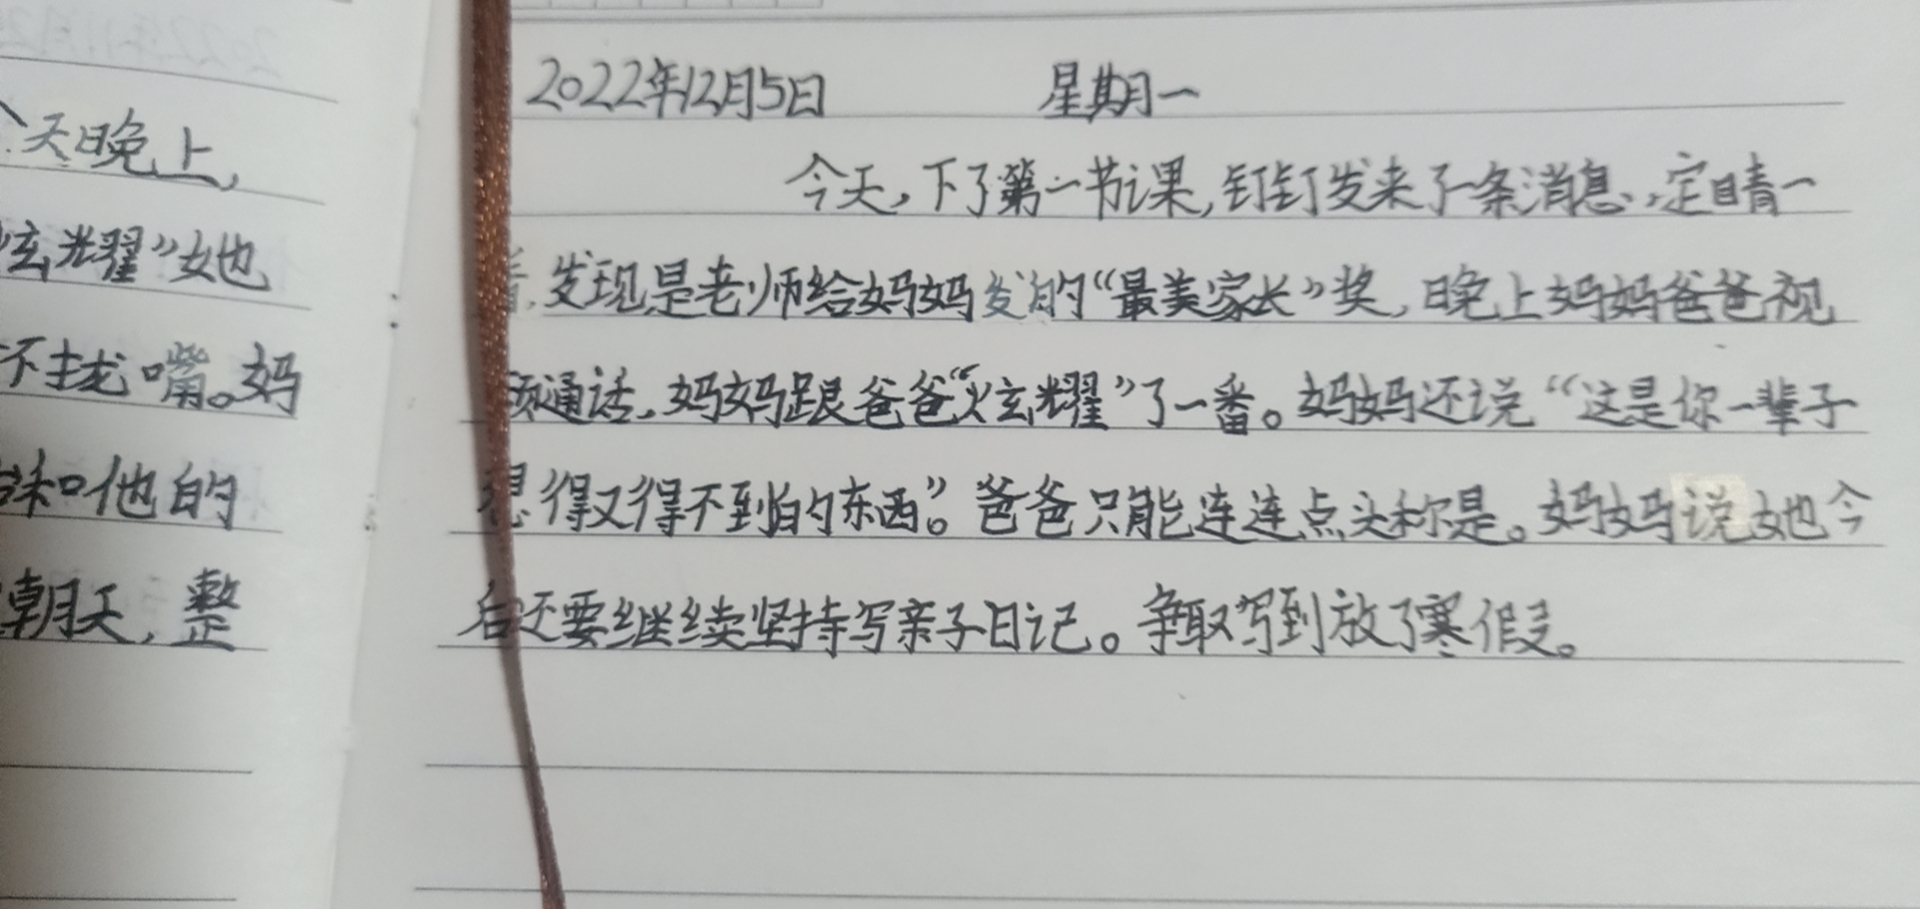 天晚上，
炫耀”她
不拢嘴。妈
和他的
朝天，整
2022年12月5日 星期一
今天，下了第一节课，钉钉发来了一条消息，定睛一
看，发现是老师给妈妈发的“最美家长”奖，晚上妈妈爸爸视
频通话，妈妈跟爸爸“炫耀”了一番。妈妈还说“这是你一辈子
想得又得不到的东西”。爸爸只能连连点头称是。妈妈说她今
后还要继续坚持写亲子日记。争取写到放了寒假。